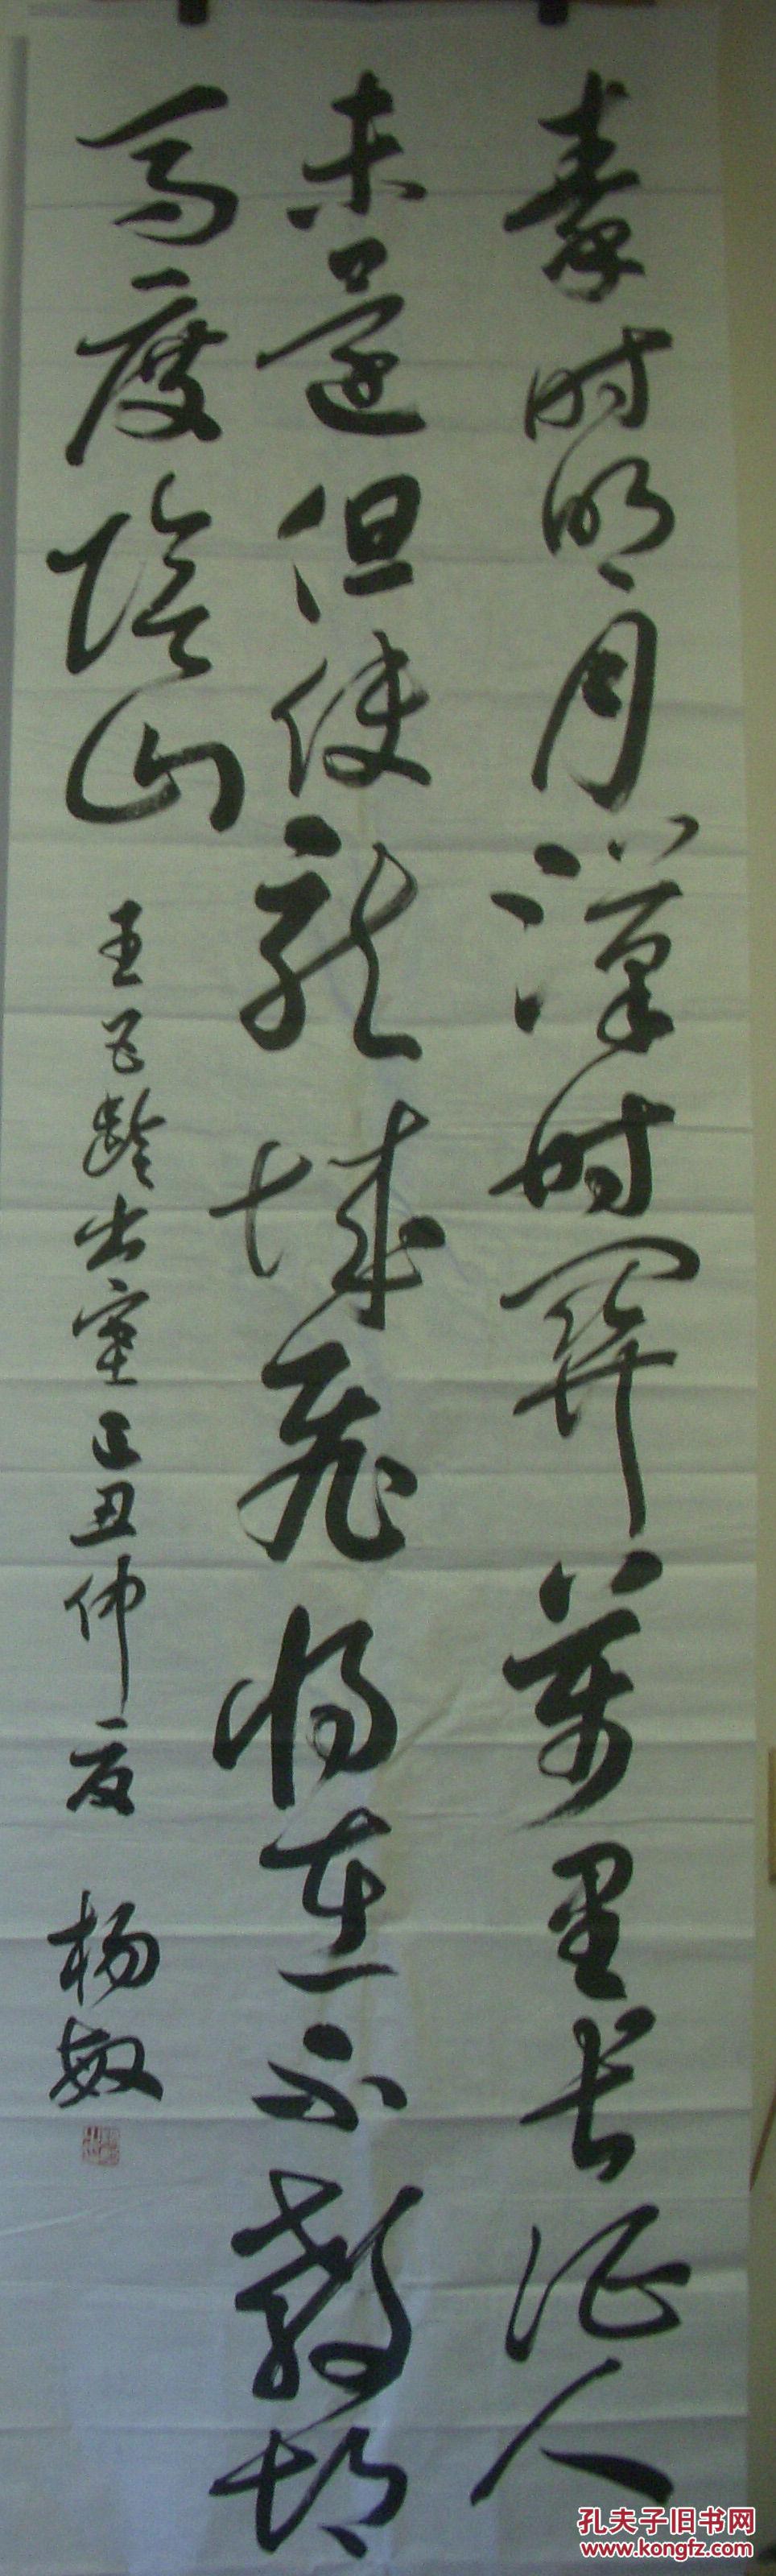 秦时明月漢时関萬里长征人
未還但使龍城飛将在不教胡
馬度陰山
王昌齡出塞己丑仲夏
杨敏
孔夫子旧书网
www.kongfz.com